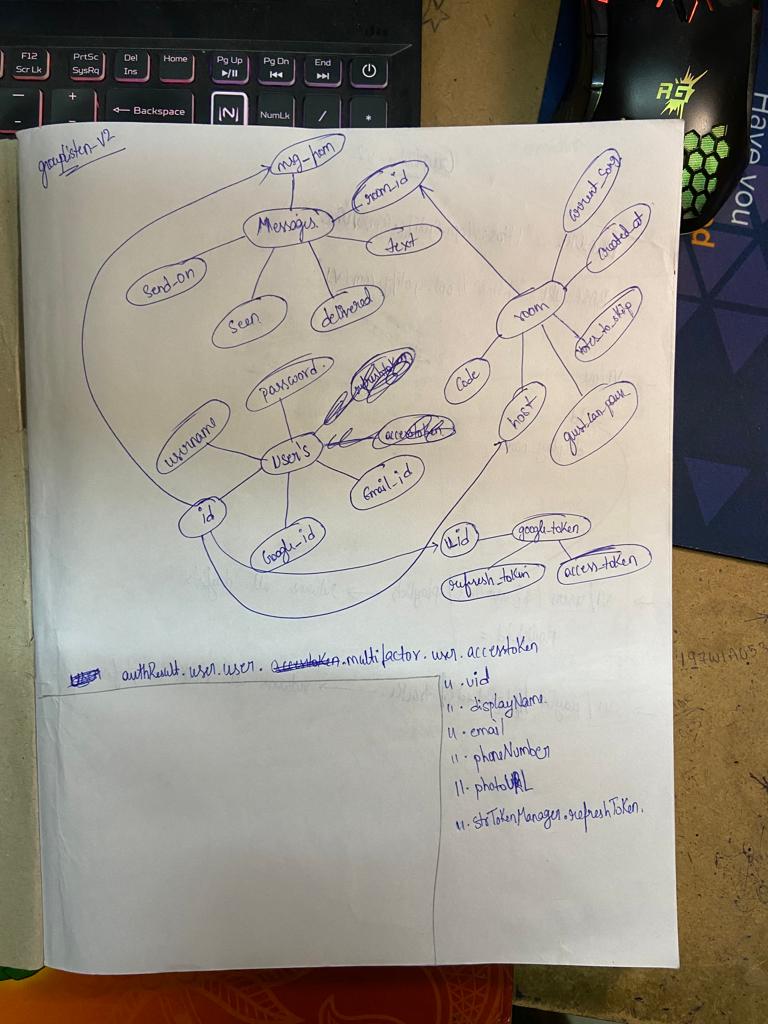 F12
Scr Lk
PrtSc
SysRq
Del
Ins
Home
Pg Up
Pg Dn
End
Backspace
NumLk
/
*
RG
Have you
groupListen-V2
msg_from
room_id
Messages
text
send_on
seen
delivered
current_song
created_at
room
votes_to_skip
Code
host
guest_can_pause
password
refreshtoken
username
User's
accesstoken
Email_id
id
Google_id
U_id
google_token
refresh_token
access_token
authResult.user.user. accesstoken.multifactor.user.accesstoken
" .uid
" .displayName
" .email
" .phoneNumber
" .photoURL
" .stsTokenManager.refreshToken.